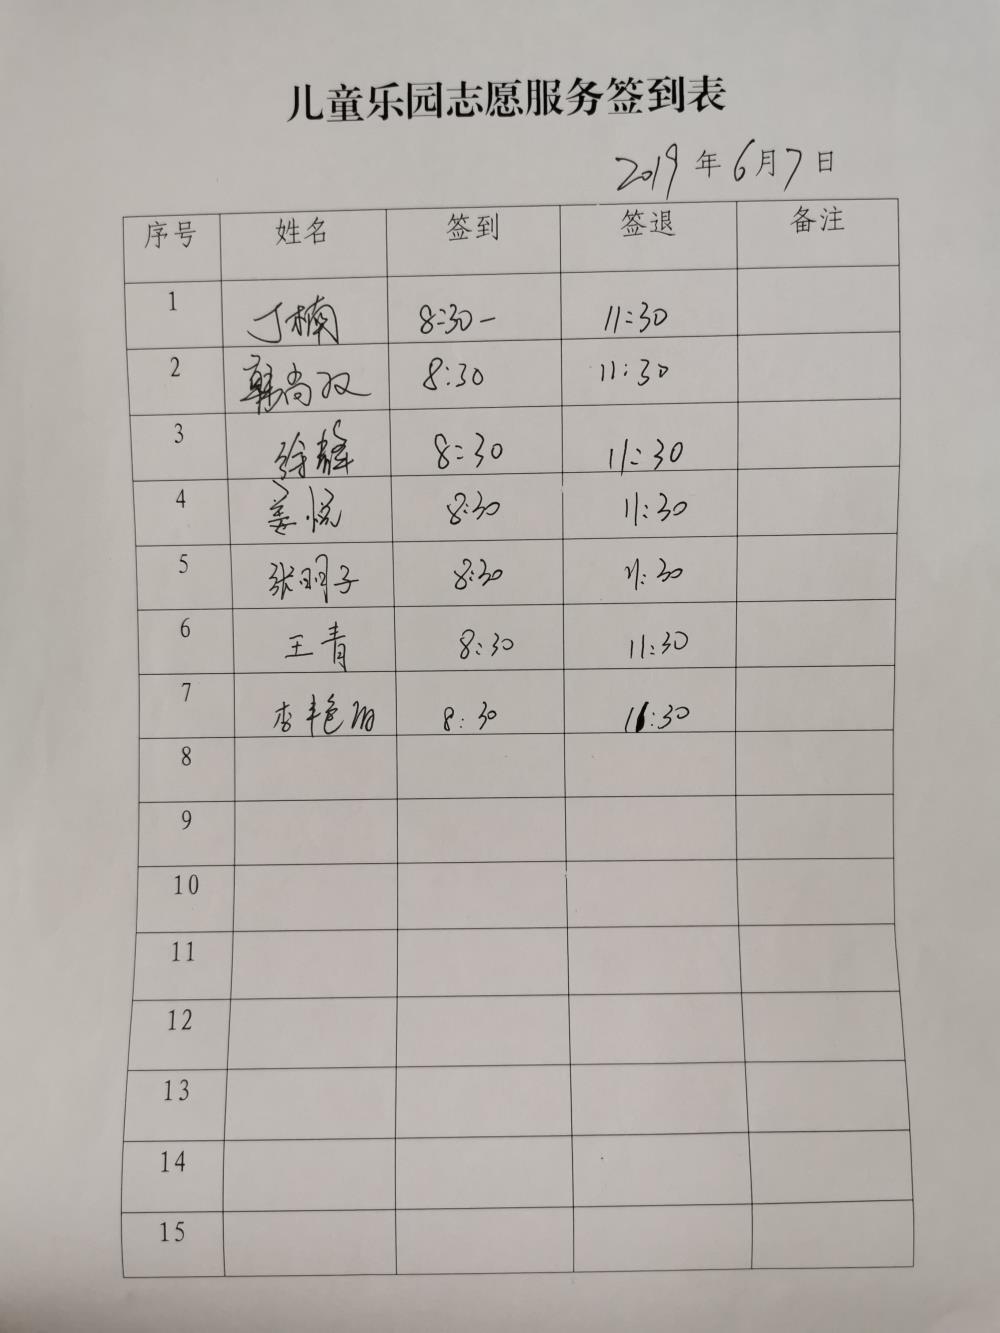 儿童乐园志愿服务签到表
2019年6月7日
序号 姓名 签到 签退 备注
1 丁楠 8:30- 11:30
2 韩尚双 8:30 11:30
3 徐 8:30 11:30
4 姜悦 8:30 11:30
5 张明子 8:30 11:30
6 王青 8:30 11:30
7 李艳 8:30 11:30
8
9
10
11
12
13
14
15